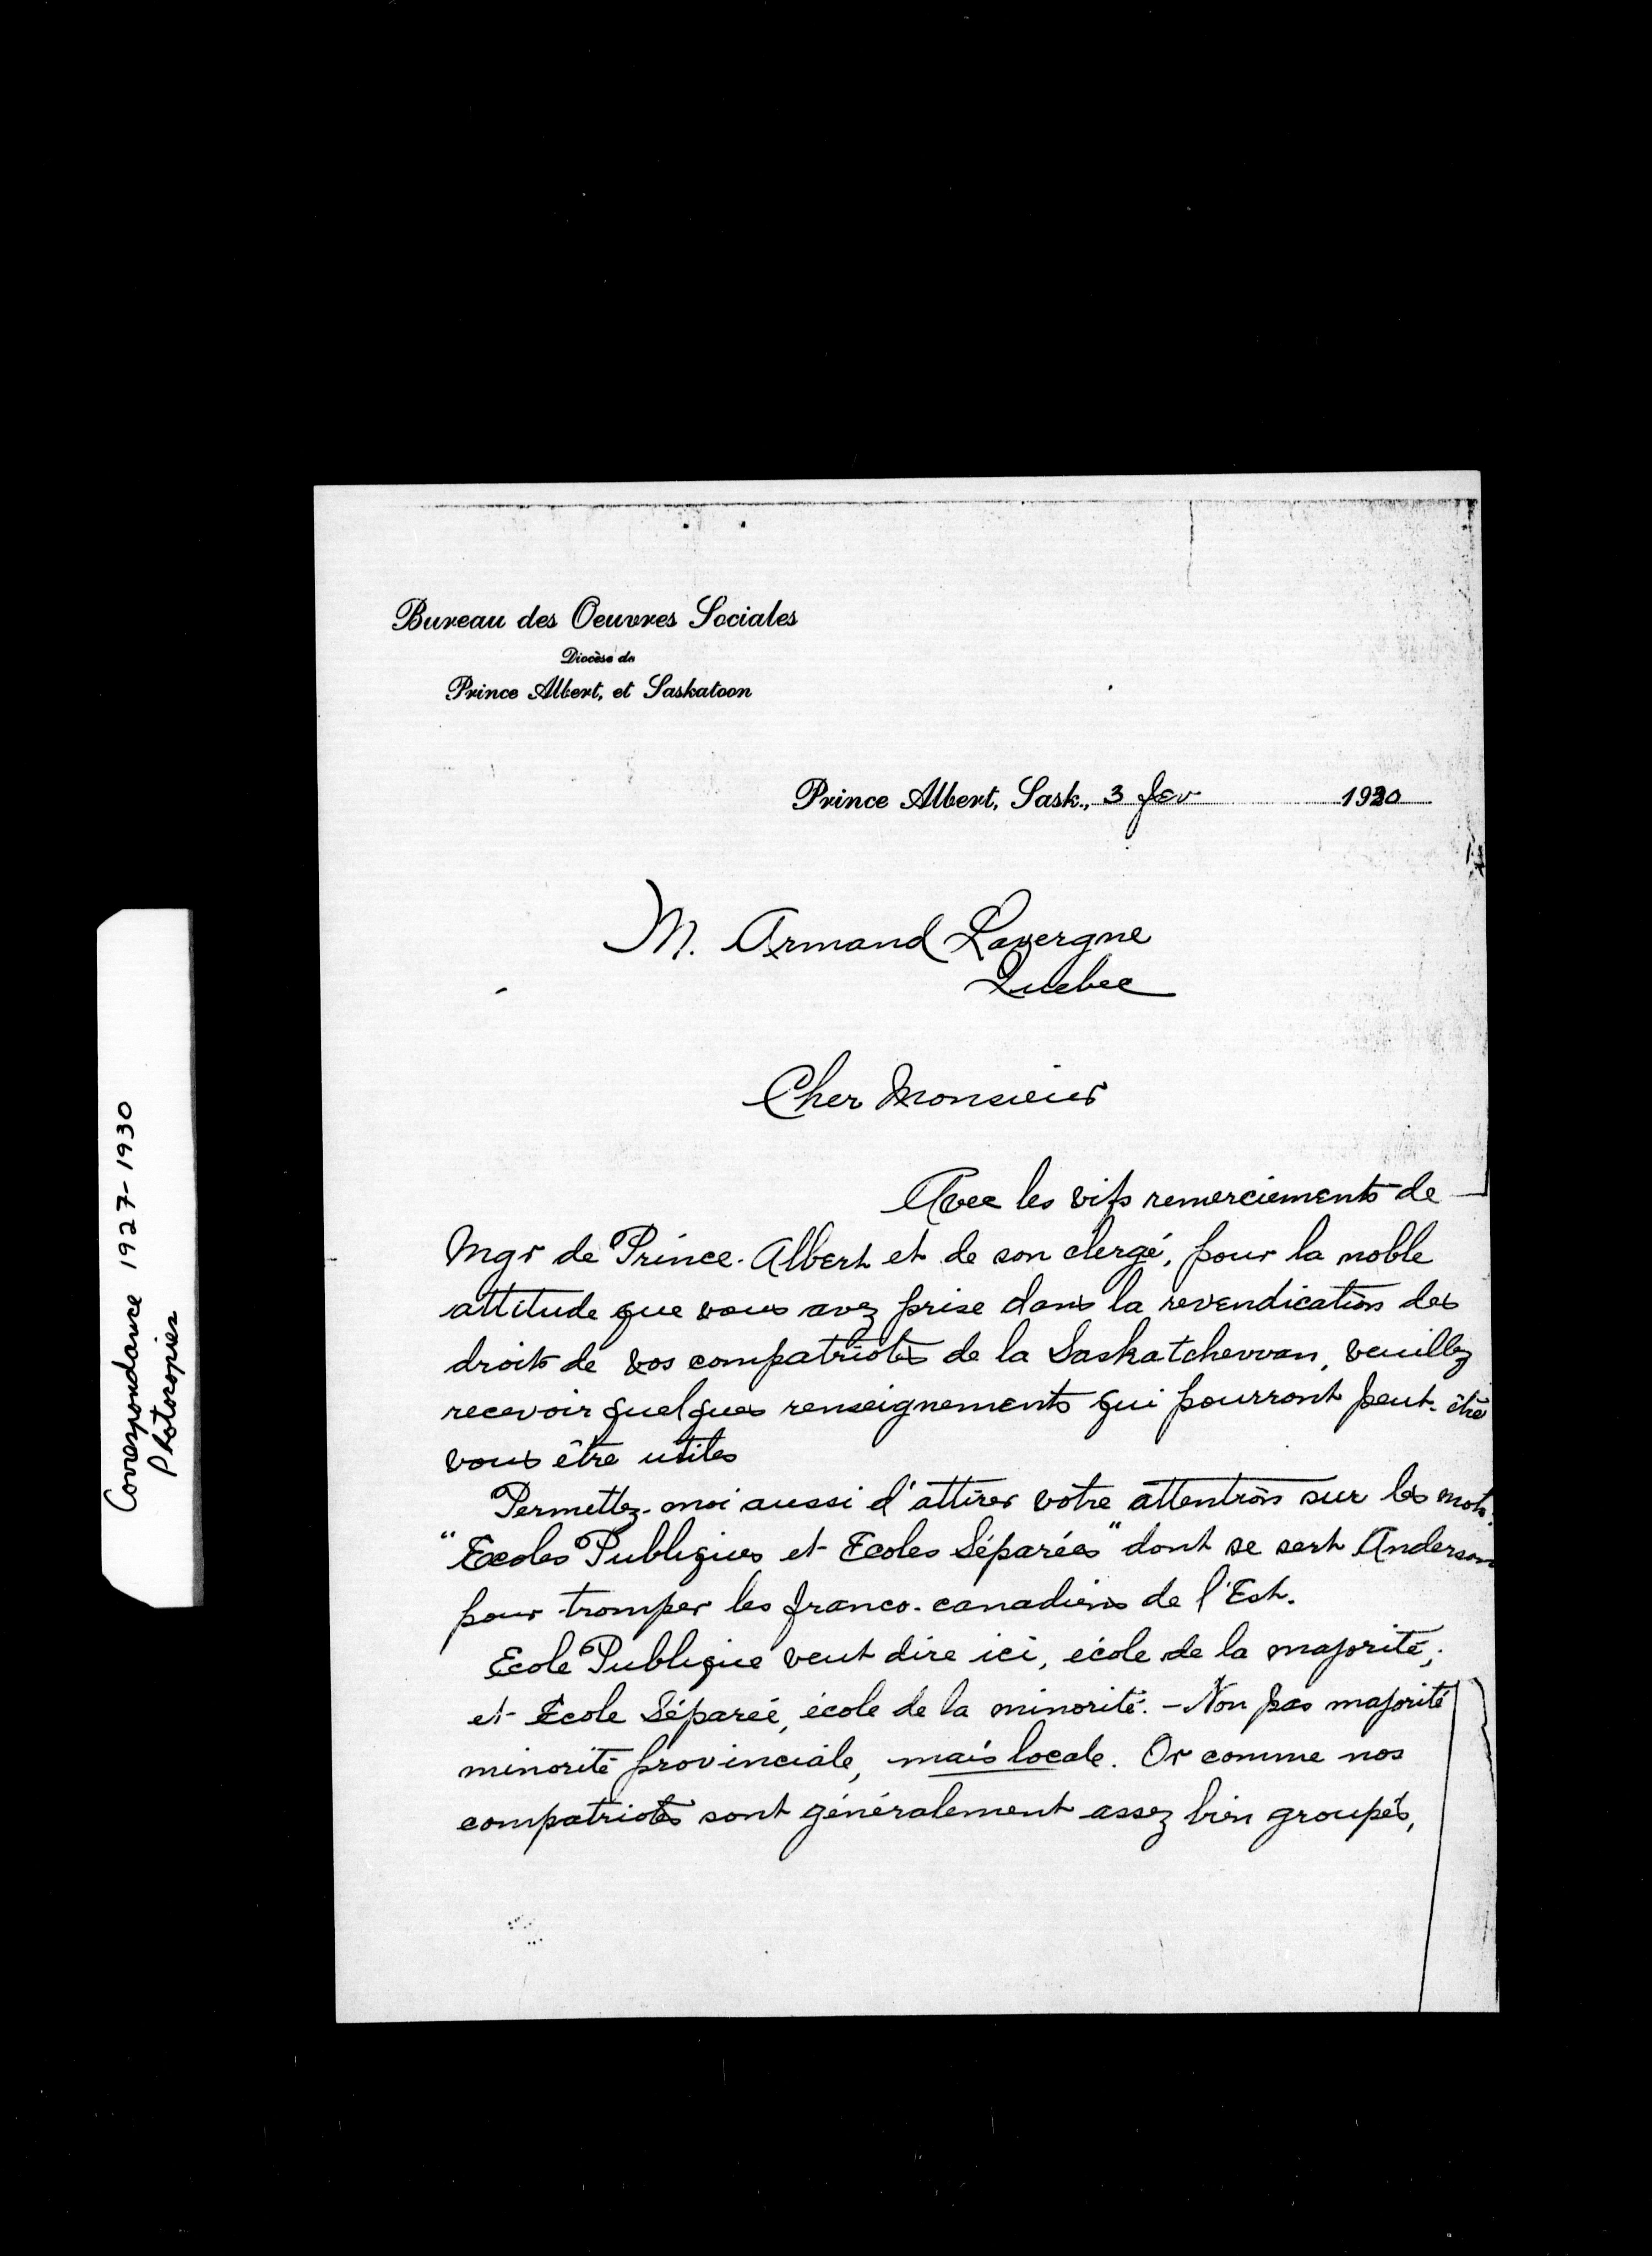 Correspondance 1927-1930
Photocopies
Bureau des Oeuvres Sociales
Diocèse de
Prince Albert, et Saskatoon
Prince Albert, Sask., 3 fev 1930
M. Armand Lavergne
Quebec
Cher Monsieur
Avec les vifs remerciements de
Mgr de Prince-Albert et de son clergé, pour la noble
attitude que vous avez prise dans la revendication des
droits de vos compatriotes de la Saskatchewan, veuillez
recevoir quelques renseignements qui pourront peut-être
vous être utiles
Permettez-moi aussi d'attirer votre attention sur les mots
"Ecoles Publiques et Ecoles Séparées" dont se sert Anderson
pour tromper les franco-canadiens de l'Est.
Ecole Publique veut dire ici, école de la majorité;
et Ecole Séparée, école de la minorité. - Non pas majorité
minorité provinciale, mais locale. Or comme nos
compatriotes sont généralement assez bien groupés,